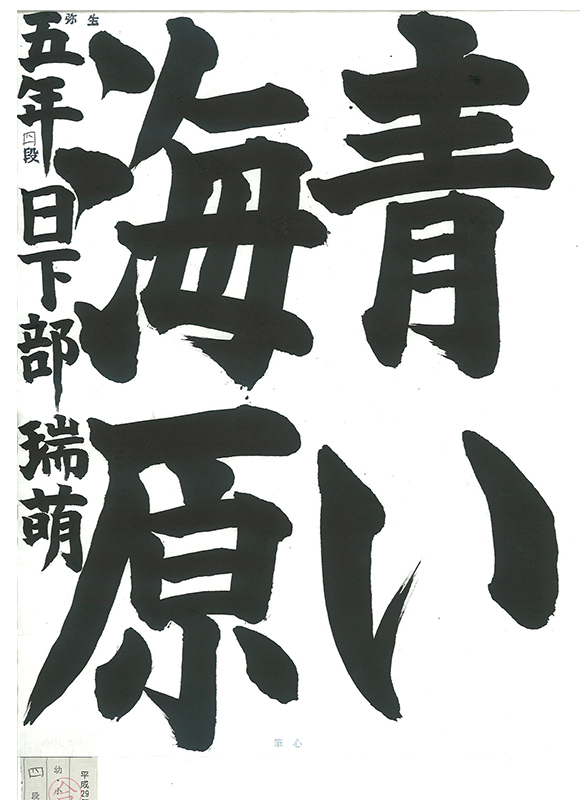 青い
海原
弥生
五年 四段 日下部 瑞萌
筆心
平成29
幼・小
四段